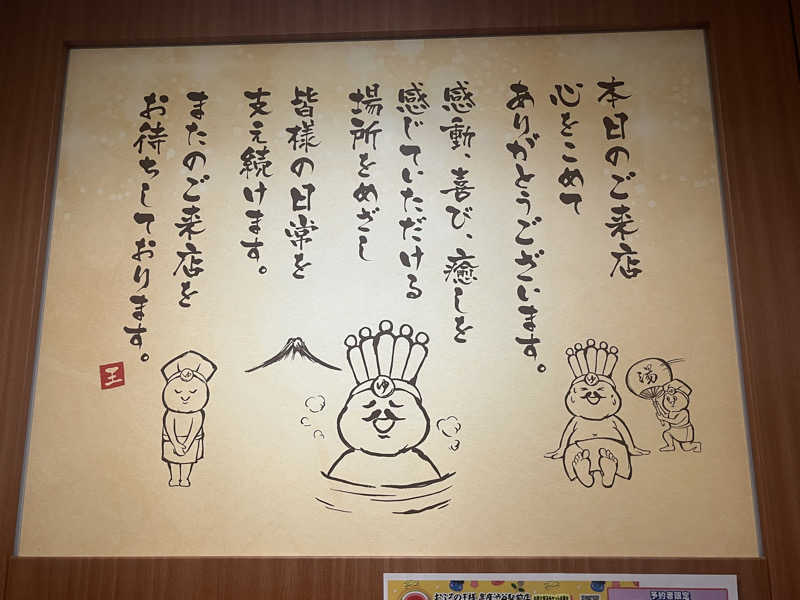 本日のご来店
心をこめて
ありがとうございます。
感動、喜び、癒しを
感じていただける
場所をめざし
皆様の日常を
支え続けます。
またのご来店を
お待ちしております。
王
ゆ
ゆ
ゆ
湯
おふろの王様
予約者限定